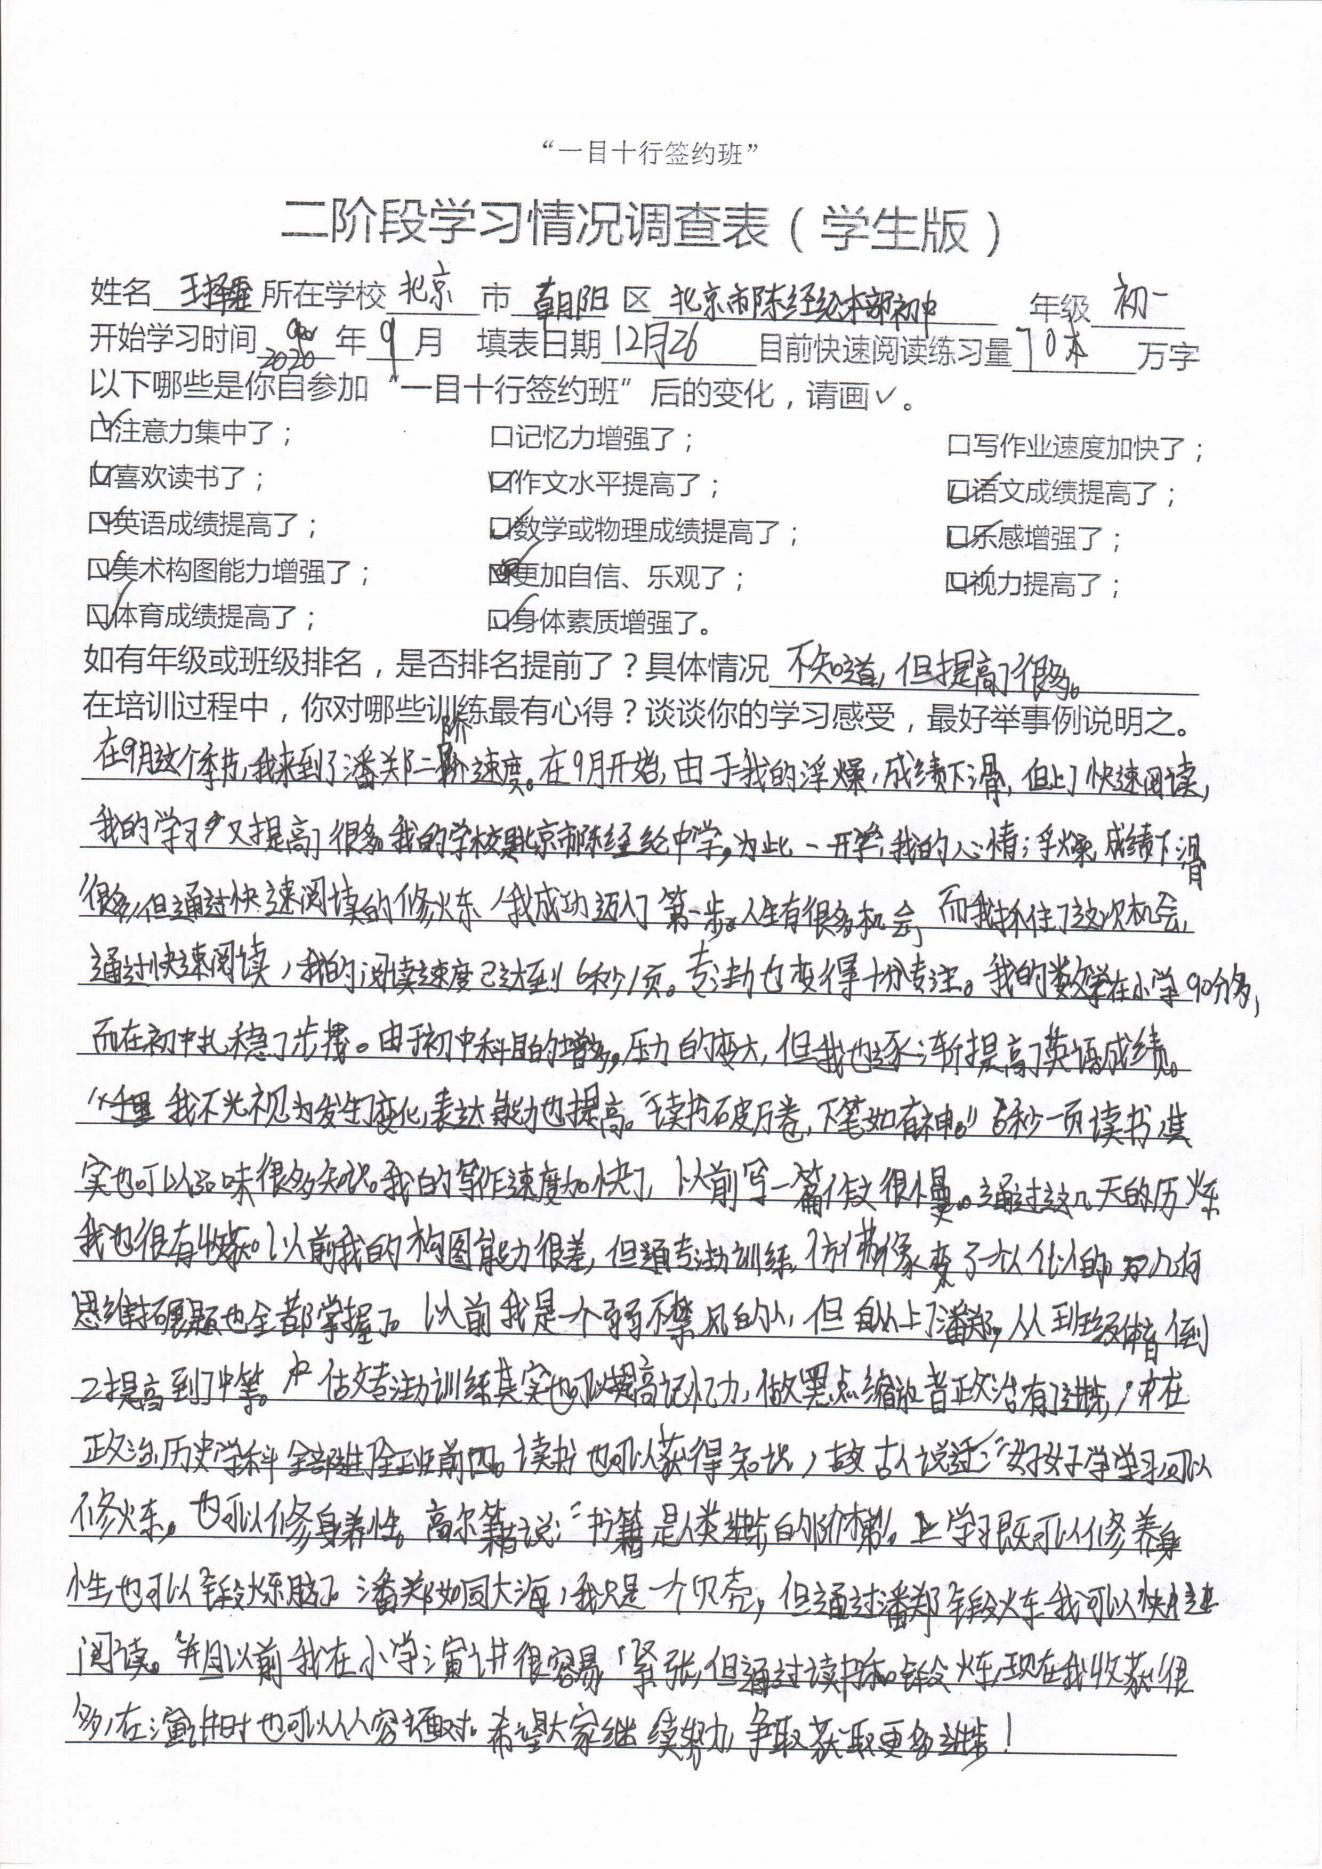 “一目十行签约班”
二阶段学习情况调查表（学生版）
姓名 王择 所在学校 北京 市 朝阳 区 北京市陈经纶本部初中 年级 初一
开始学习时间 2020 年 9 月 填表日期 12月26 目前快速阅读练习量 70本 万字
以下哪些是你自参加“一目十行签约班”后的变化，请画✓。
☑注意力集中了； 口记忆力增强了； 口写作业速度加快了；
☑喜欢读书了； ☑作文水平提高了； ☑语文成绩提高了；
☑英语成绩提高了； ☑数学或物理成绩提高了； ☑乐感增强了；
☑美术构图能力增强了； ☑更加自信、乐观了； ☑视力提高了；
☑体育成绩提高了； ☑身体素质增强了。
如有年级或班级排名，是否排名提前了？具体情况 不知道，但提高了很多。
在培训过程中，你对哪些训练最有心得？谈谈你的学习感受，最好举事例说明之。
在9月这个季节，我来到了潘郑二阶速度。在9月开始，由于我的浮燥，成绩下滑，但上了快速阅读，
我的学习又提高了很多。我的学校是北京市陈经纶中学，为此一开学，我的心情浮燥，成绩下滑
很多，但通过快速阅读的修炼，我成功迈入了第一步。人生有很多机会，而我抓住了这次机会，
通过快速阅读，我的阅读速度已达到6秒1页。专注力也变得十分专注。我的数学在小学90分多，
而在初中扎稳了步骤。由于初中科目的增多，压力的变大，但我也逐渐提高了英语成绩。
我不光视力发生了变化，表达能力也提高。“读书破万卷，下笔如有神。”6秒一页读书，其
实也可以品味很多知识。我的写作速度加快了，以前写一篇作文很慢。通过这几天的历炼
我也很有收获。以前我的构图能力很差，但通专注力训练，仿佛像变了一个人似的，几何
思维拓展题也全都掌握了。以前我是一个弱不禁风的人，但自从上了潘郑，从班级体育倒
2提高到了中等。 专注力训练其实也可以提高记忆力，做黑点缩放者政治有了进步，才在
政治，历史学科全部进了全班前四。读书也可以获得知识，故古人说过：“好好学学习可以
修炼。也可以修身养性。高尔籍说：“书籍是人类进步的阶梯”。学习既可以修养身
性，也可以锻炼脑。潘郑如同大海，我只是一个贝壳，但通过潘郑锻炼我可以快速
阅读。并且以前我在小学演讲很容易紧张，但通过读书和锻炼，现在我收获很
多，在演讲时也可以从容面对。希望大家继续努力，争取获取更多进步！